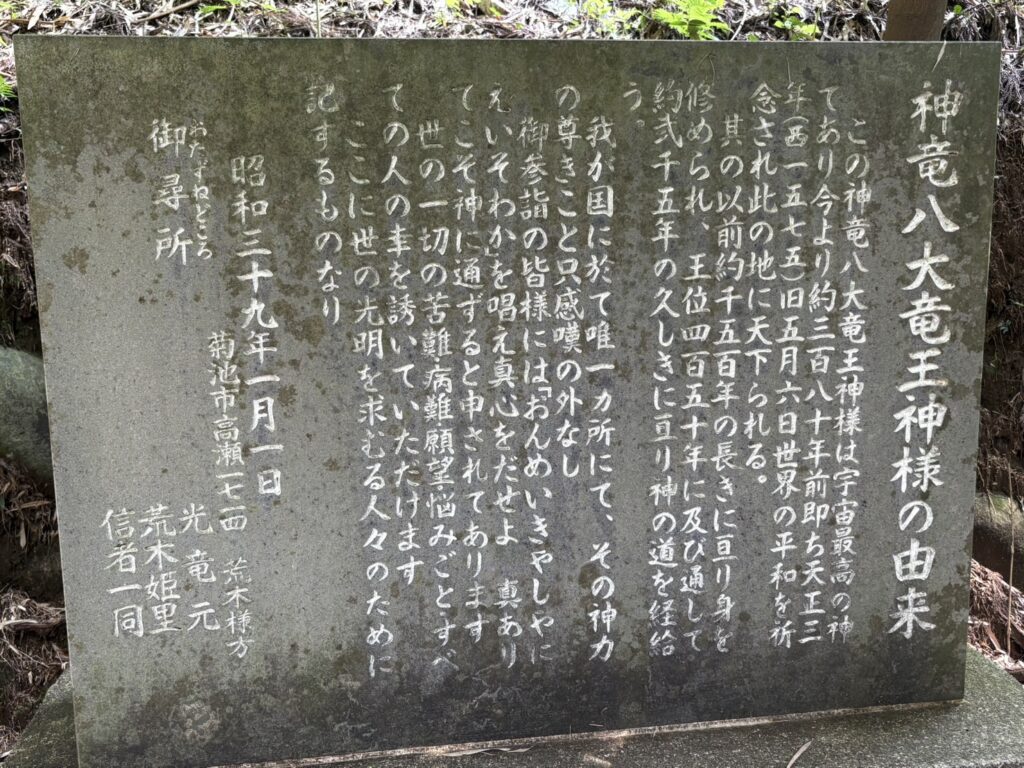 神竜八大竜王神様の由来
この神竜八大竜王神様は宇宙最高の神
てあり今より約三百八十年前即ち天正三
年(西一五七五)旧五月六日世界の平和を祈
念され此の地に天下られる。
其の以前約千五百年の長きに亘り身を
修められ、王位四百五十年に及び通して
約弐千五年の久しきに亘り神の道を経給
う。
我が国に於て唯一カ所にて、その神力
の尊きこと只感嘆の外なし
御参詣の皆様には「おんめいきやしやに
えいそわか」を唱え真心をだせよ 真あり
てこそ神に通ずると申されてあります
世の一切の苦難病難願望悩みごとすべ
ての人の幸を誘いていたたけます
ここに世の光明を求むる人々のために
記するものなり
昭和三十九年一月一日
おたずねどころ
御尋所
菊池市高瀬一七二四 荒木様方
光竜元
荒木姫里
信者一同